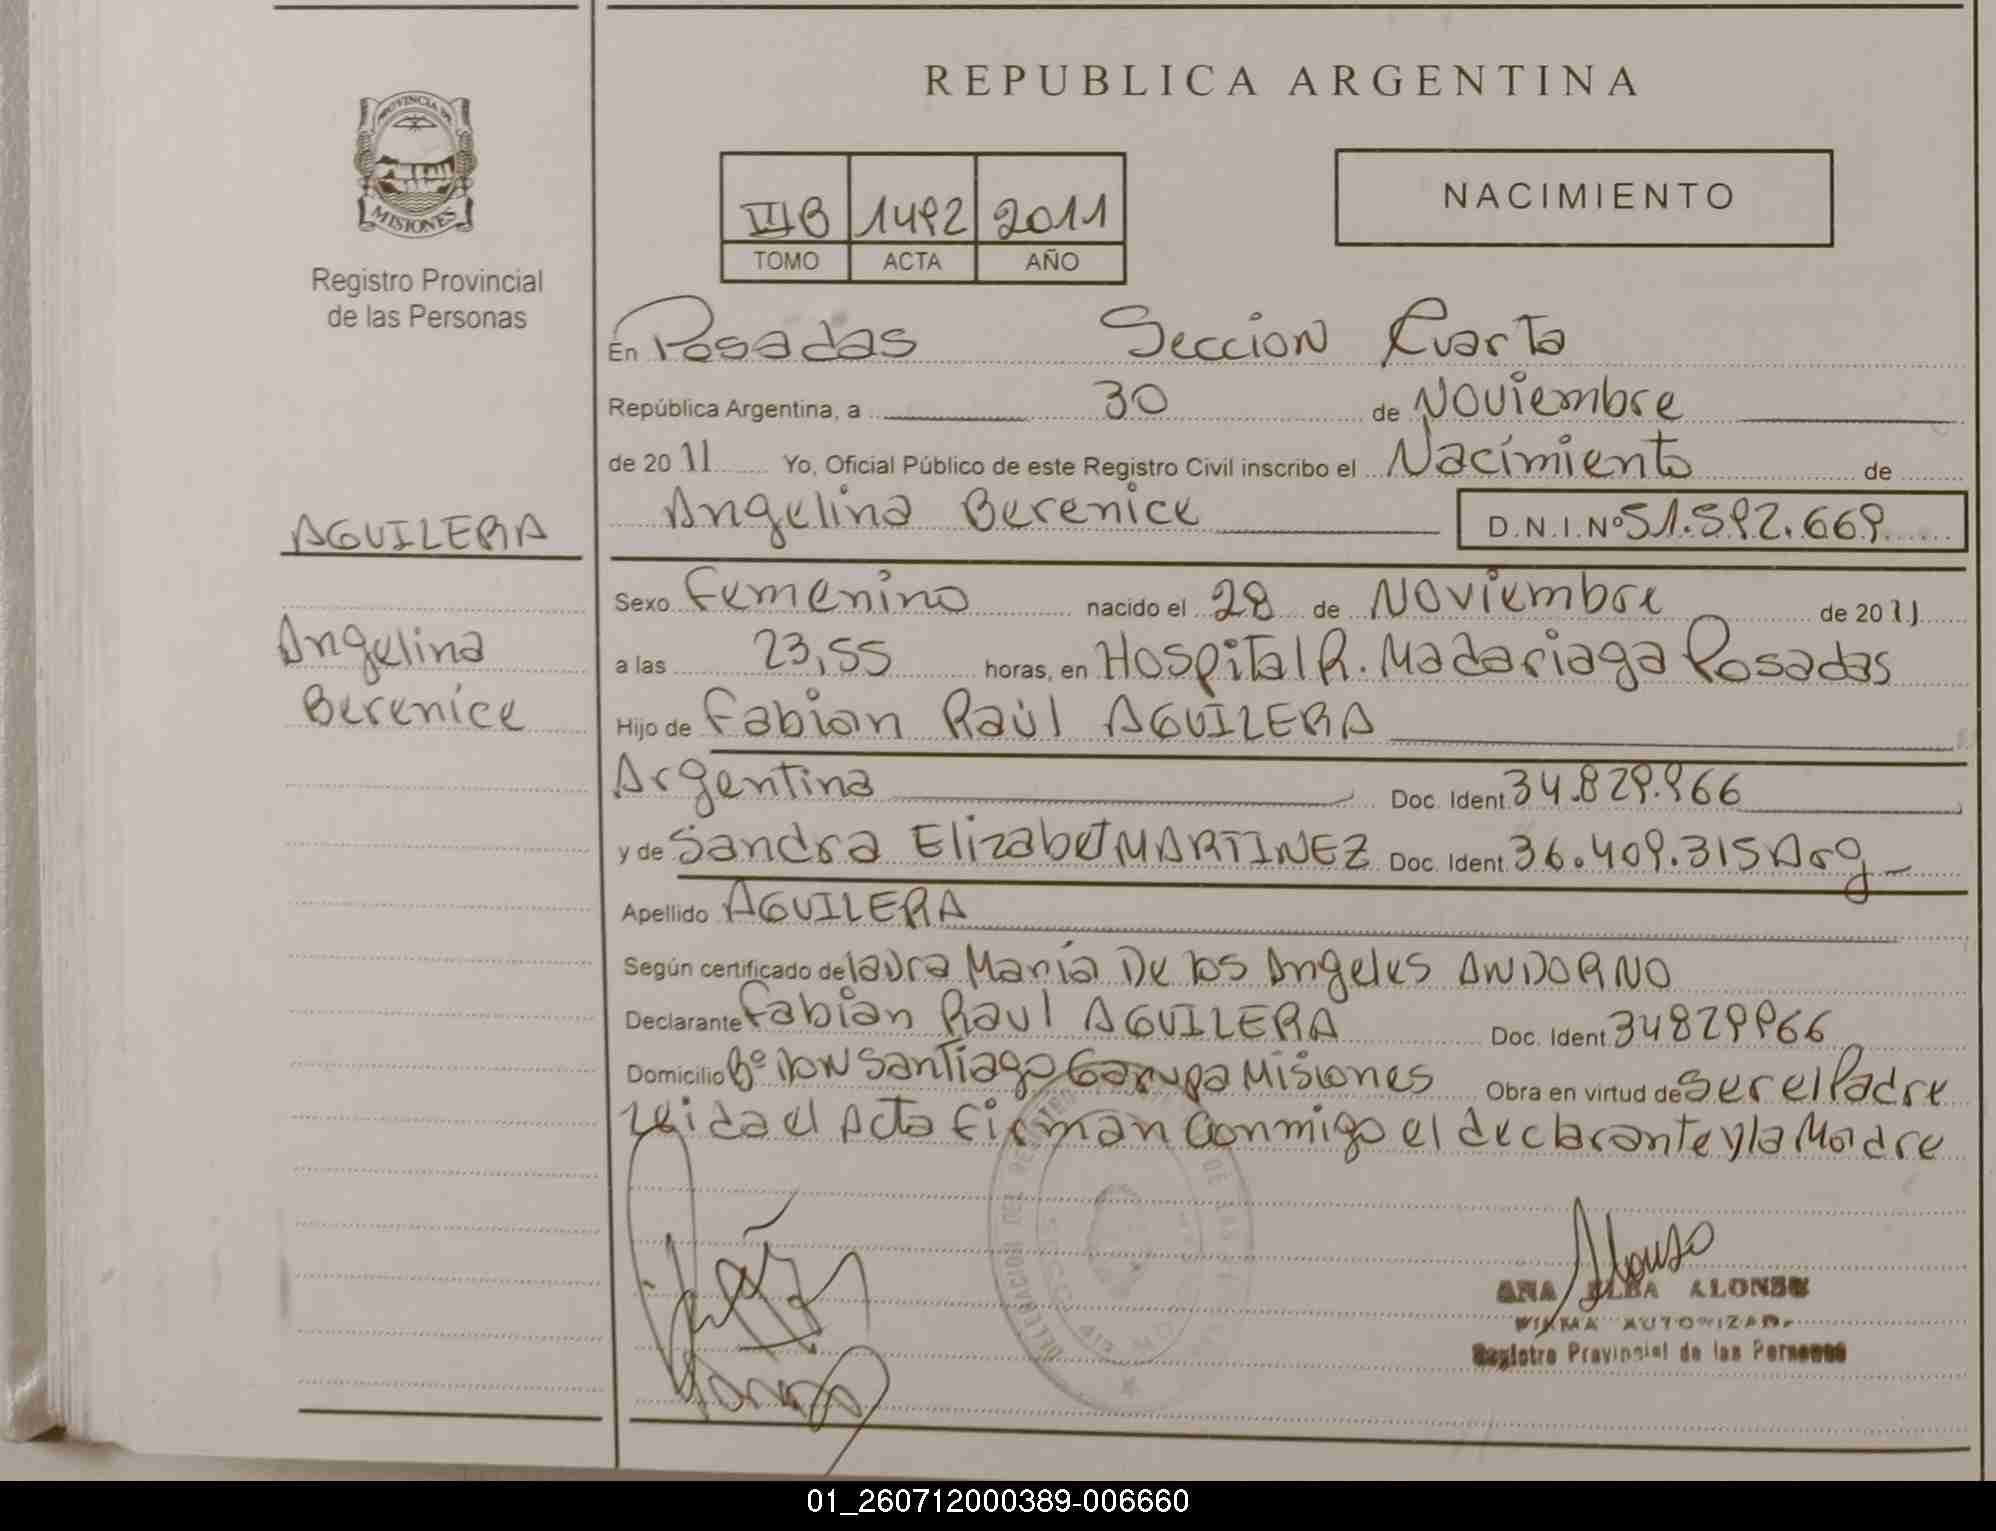 REPUBLICA ARGENTINA
PROVINCIA DE
MISIONES
Registro Provincial
de las Personas
NACIMIENTO
IIIB 1492 2011
TOMO ACTA AÑO
En Posadas Seccion Cuarta
República Argentina, a 30 de Noviembre
de 2011 Yo, Oficial Público de este Registro Civil inscribo el Nacimiento de
Angelina Berenice D.N.I.Nº 51.592.669
AGUILERA
Angelina
Berenice
Sexo Femenino nacido el 28 de Noviembre de 2011
a las 23,55 horas, en Hospital R. Madariaga Posadas
Hijo de Fabian Raúl AGUILERA
Argentina Doc. Ident. 34.829.966
y de Sandra Elizabet MARTINEZ Doc. Ident. 36.409.315 Arg
Apellido AGUILERA
Según certificado de laura Maria De los Angeles ANDORNO
Declarante Fabian Raul AGUILERA Doc. Ident. 34829966
Domicilio Bº Don Santiago Garupa Misiones Obra en virtud de Ser el Padre
leida el Acta firman conmigo el declarante y la Madre
DELEGACION DEL REGISTRO DE LAS
Alonso
ANA ELBA ALONSO
FIRMA AUTORIZADA
Registro Provincial de las Personas
01_260712000389-006660